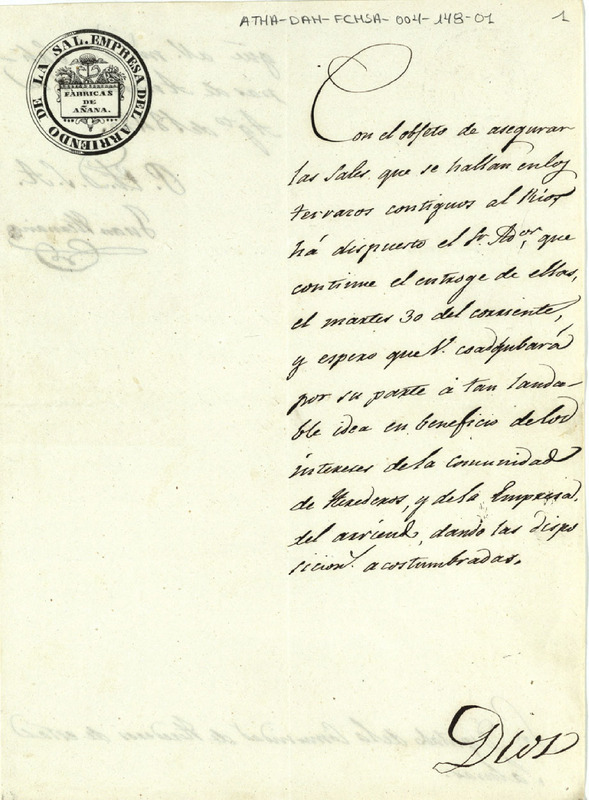 ATHA-DAH-FCHSA-004-148-01
1
EMPRESA DEL ARRIENDO DE LA SAL.
FÁBRICAS
DE
AÑANA.
Con el objeto de asegurar
las sales que se hallan en los
terrazos contiguos al Rio,
há dispuesto el Sr. Ador, que
continue el entroge de ellas,
el martes 30 del corriente,
y espero que V. coadyubará
por su parte á tan lauda-
ble idea en beneficio de los
intereses de la Comunidad
de Herederos, y de la Empresa
del arriendo, dando las dispo
siciones acostumbradas.
Dios